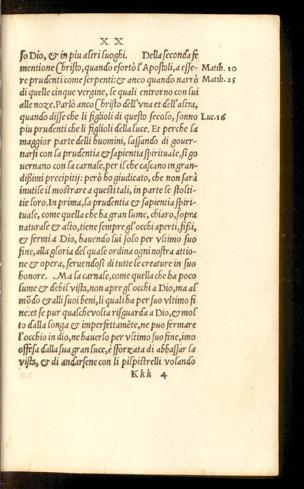 XX
so Dio, & in piu altri luoghi. Della seconda fe
mentione Christo, quando esortò l'Apostoli, a esse- Matth. 10
re prudenti come serpenti: & anco quando narrò Matth. 25
di quelle cinque vergine, le quali entrorno con lui
alle nozze. Parlò anco Christo dell'vna et dell'altra,
quando disse che li figlioli di questo secolo, sonno Luc. 16
piu prudenti che li figlioli della luce. Et perche la
maggior parte delli huomini, lassando di gouer-
narsi con la prudentia & sapientia spirituale, si go
uernano con la carnale, per il che cascano in gran-
dißimi precipitij: però ho giudicato, che non sarà
inutile il mostrare a questi tali, in parte le stolti-
tie loro. In prima, la prudentia & sapientia spiri-
tuale, come quella che ha gran lume, chiaro, sopra
naturale & alto, tiene sempre gl'occhi aperti, fißi,
& fermi a Dio, hauendo lui solo per vltimo suo
fine, alla gloria del quale ordina ogni nostra attio-
ne & opera, seruendosi di tutte le creature in suo
honore. Ma la carnale, come quella che ha poco
lume & debil vista, non apre gl'occhi a Dio, ma al
mõdo & alli suoi beni, li quali ha per suo vltimo fi
ne: et se pur qualche volta risguarda a Dio, & mol
to dalla longa & imperfettamẽte, ne puo fermare
l'occhio in dio, ne hauerlo per vltimo suo fine, imo
offesa dalla sua gran luce, è sforzata di abbassar la
vista, & di andarsene con li pispistrelli volando
Kkk 4